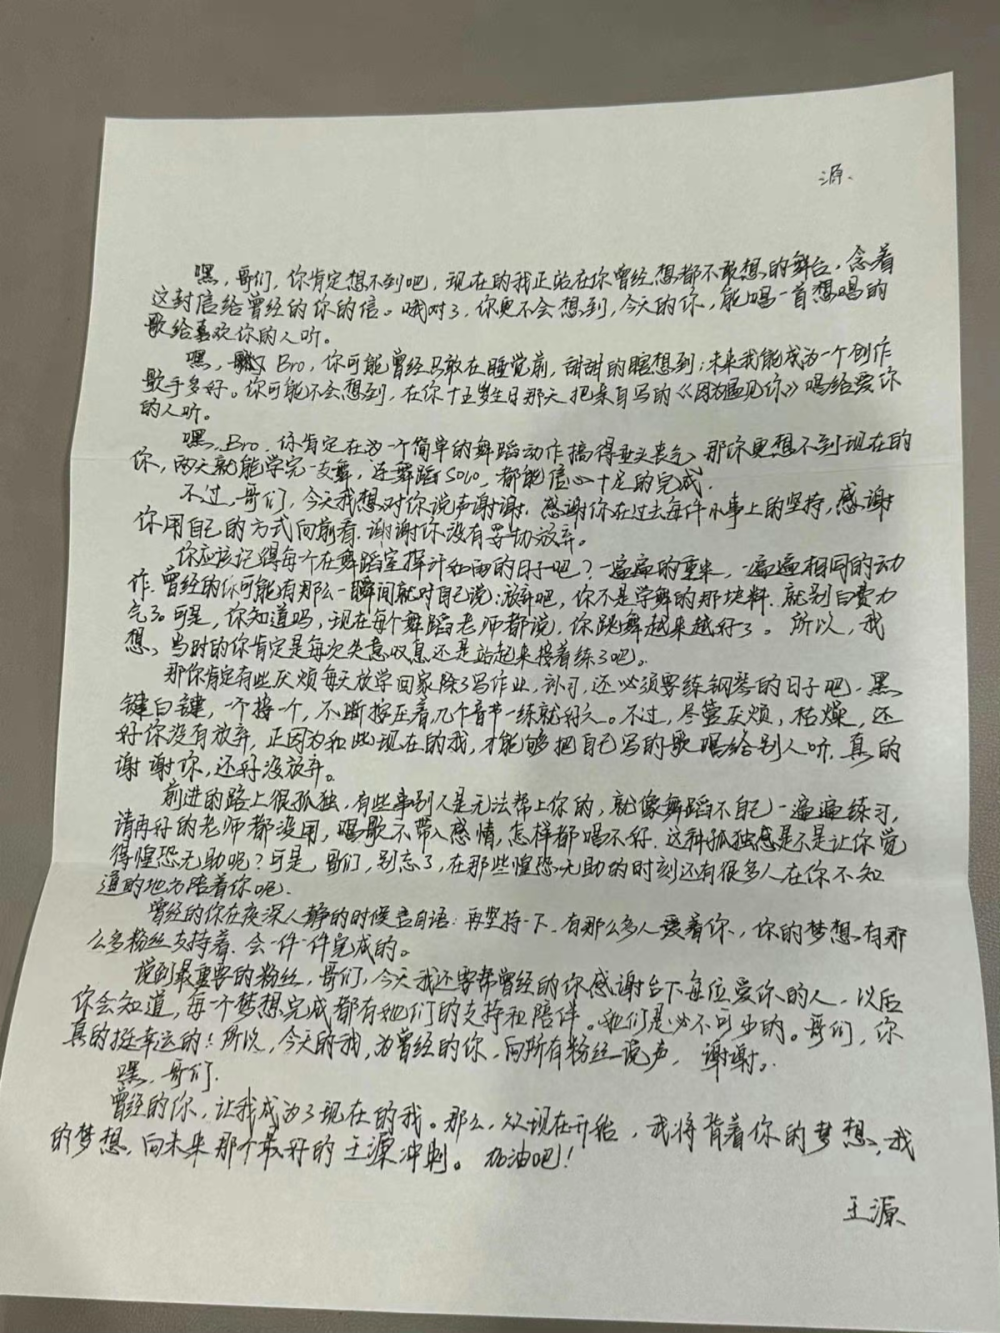 源、
嘿，哥们，你肯定想不到吧，现在的我正站在你曾经想都不敢想的舞台，念着
这封信给曾经的你的信。哦对了，你更不会想到，今天的你，能唱一首想唱的
歌给喜欢你的人听。
嘿，Bro，你可能曾经只敢在睡觉前，甜甜的瞎想到：未来我能成为一个创作
歌手多好。你可能不会想到，在你十五岁生日那天把亲自写的《因为遇见你》唱给爱你
的人听。
嘿，Bro，你肯定在为一个简单的舞蹈动作搞得垂头丧气，那你更想不到现在的
你，两天就能学完一支舞，还舞蹈solo，都能信心十足的完成.
不过，哥们，今天我想对你说声谢谢，感谢你在过去每件小事上的坚持，感谢
你用自己的方式向前看，谢谢你没有妥协放弃。
你应该记得每个在舞蹈室挥汗如雨的日子吧？一遍遍的重来，一遍遍相同的动
作.曾经的你可能有那么一瞬间就对自己说：放弃吧，你不是学舞的那块料.就别白费力
气了。可是，你知道吗，现在每个舞蹈老师都说，你跳舞越来越好了。所以，我
想，当时的你肯定是每次失意叹息还是站起来接着练了吧。
那你肯定有些厌烦每天放学回家除了写作业，补习，还必须要练钢琴的日子吧.黑
键白键，一个接一个，不断按压着，几个音节一练就好久。不过，尽管厌烦，枯燥，还
好你没有放弃，正因为如此现在的我，才能够把自己写的歌唱给别人听，真的
谢谢你，还好没放弃。
前进的路上很孤独，有些事别人是无法帮上你的，就像舞蹈不自己一遍遍练习，
请再好的老师都没用，唱歌不带入感情，怎样都唱不好.这种孤独感是不是让你觉
得惶恐无助呢？可是，哥们，别忘了，在那些惶恐无助的时刻还有很多人在你不知
道的地方陪着你呢.
曾经的你在夜深人静的时候自语：再坚持一下，有那么多人爱着你，你的梦想有那
么多粉丝支持着.会一件一件完成的。
说到最重要的粉丝，哥们，今天我还要帮曾经的你感谢台下每位爱你的人，以后
你会知道，每一个梦想完成都有她们的支持和陪伴。她们是必不可少的。哥们，你
真的挺幸运的！所以，今天的我，为曾经的你，向所有粉丝说声，谢谢。
嘿，哥们.
曾经的你，让我成为了现在的我。那么，从现在开始，我将背着你的梦想，我
的梦想，向未来那个最好的王源冲刺。加油吧！
王源